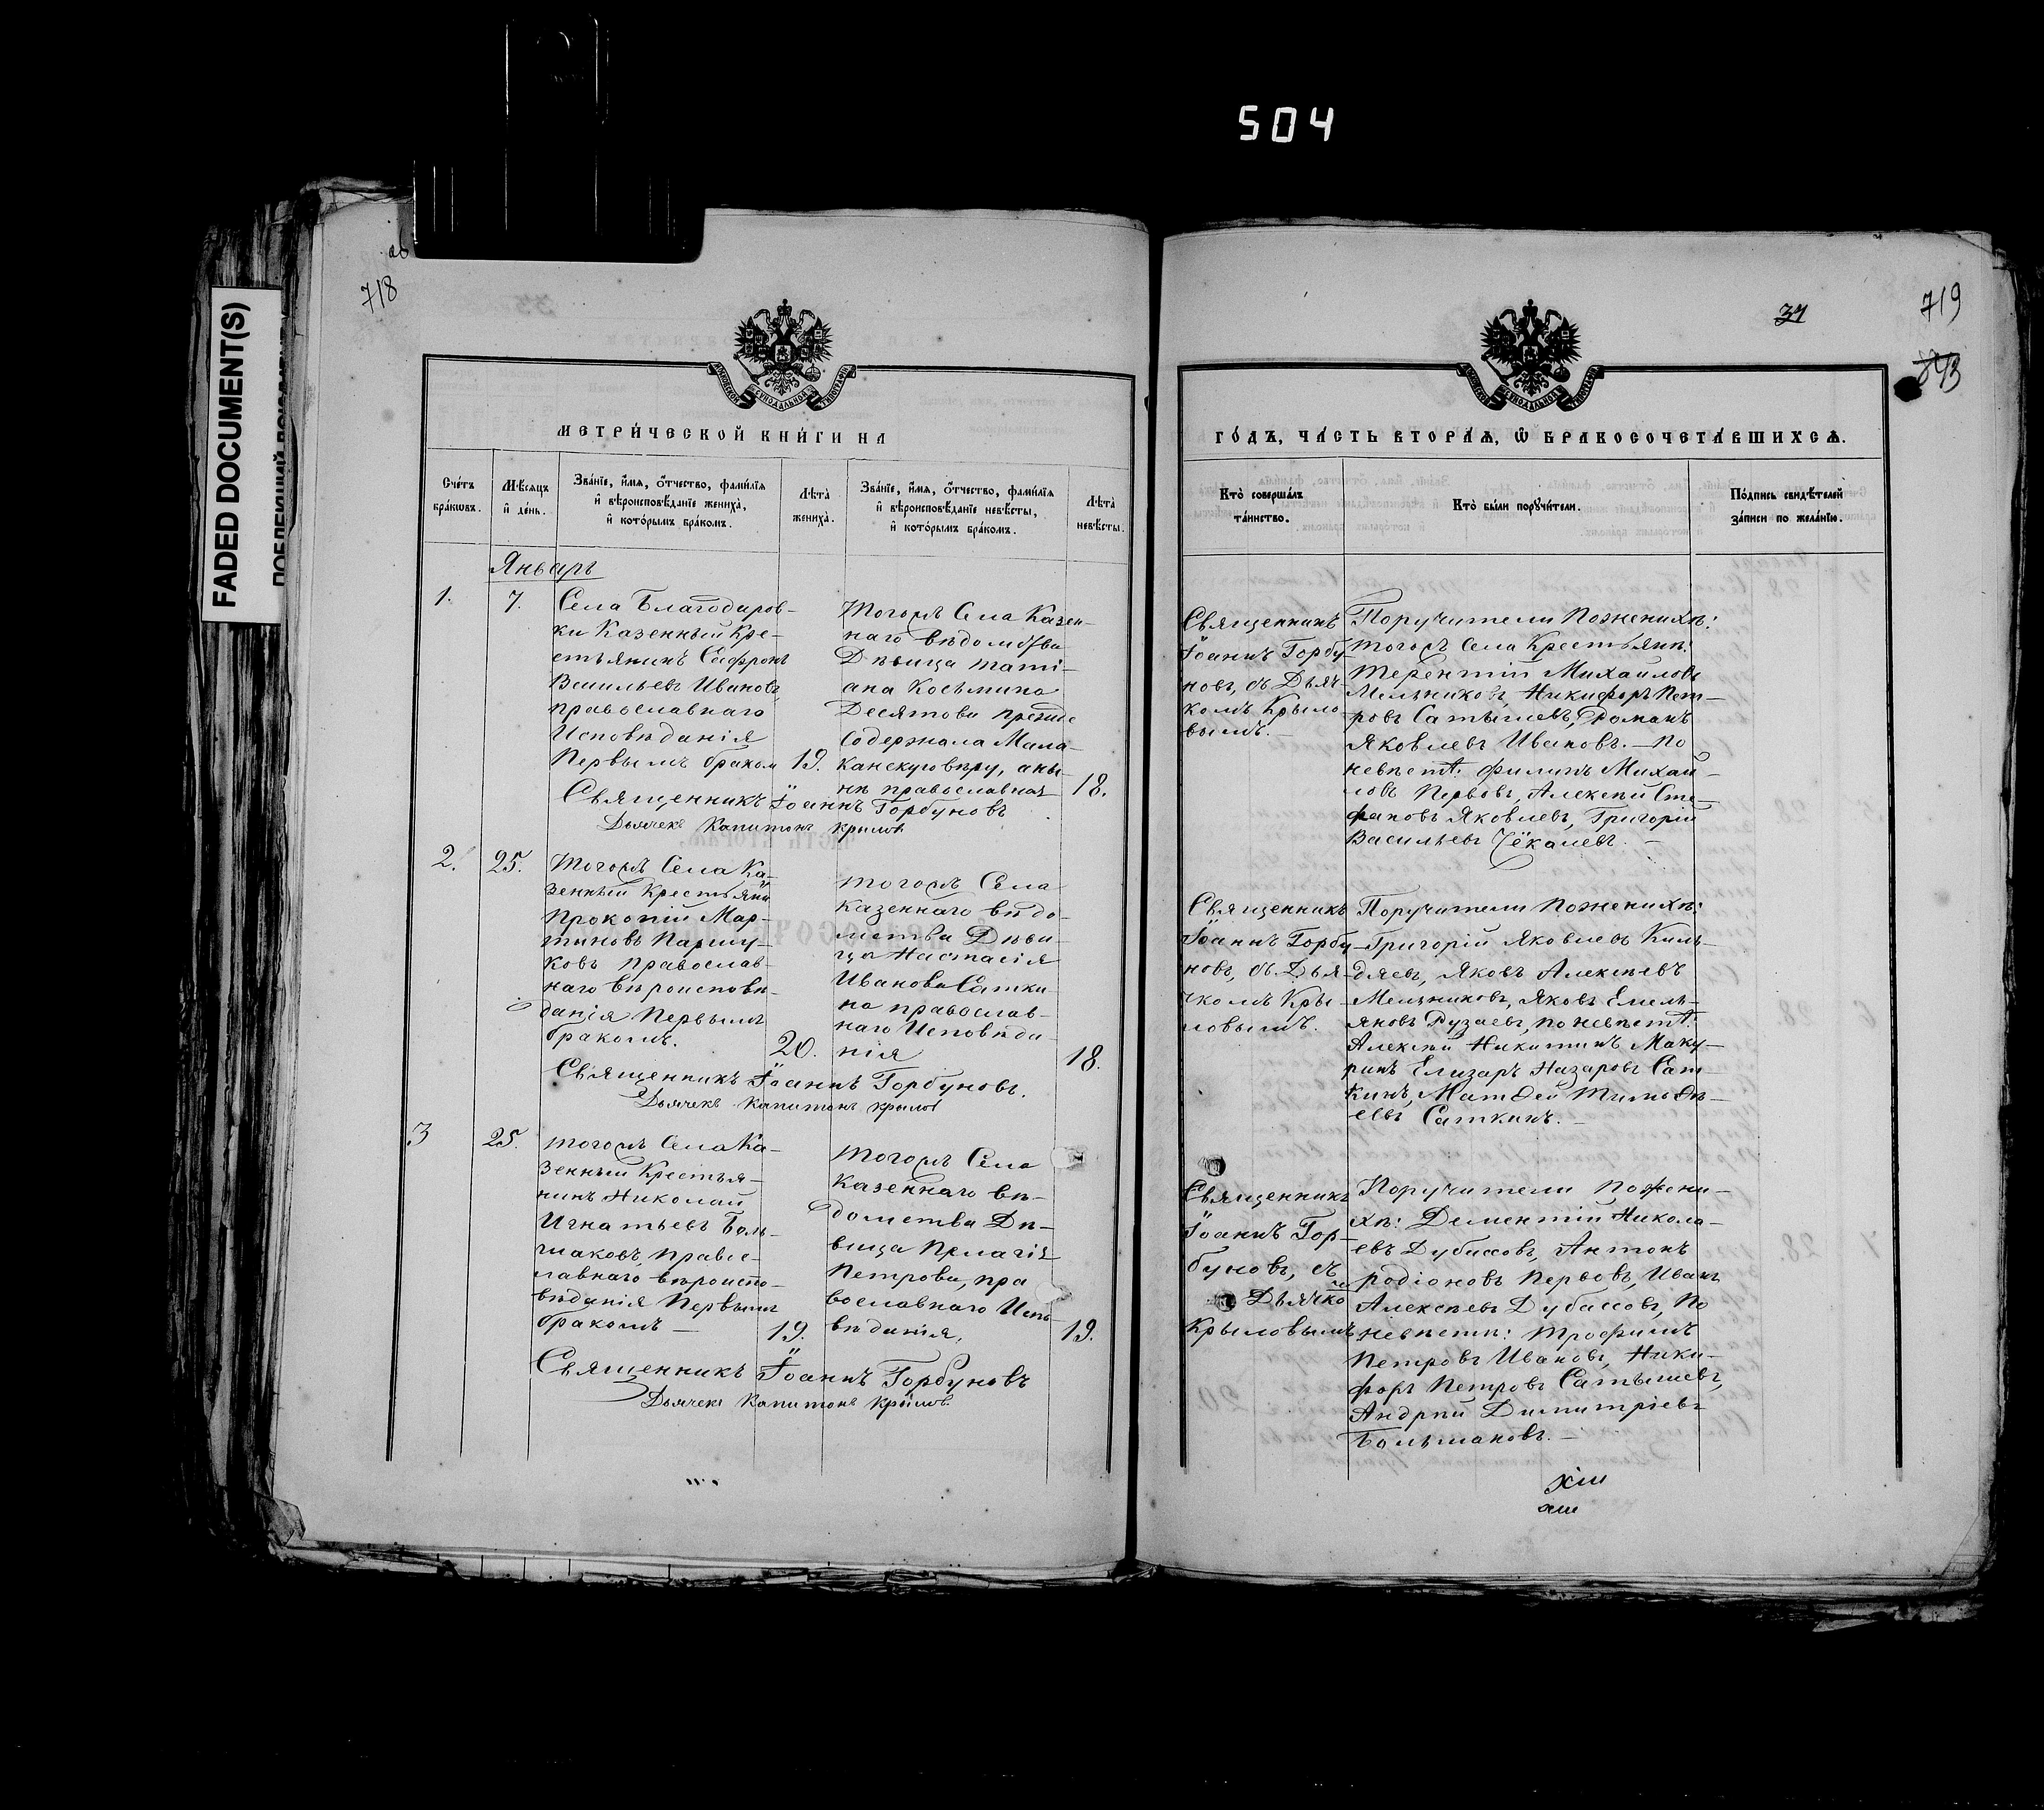 504
FADED DOCUMENT(S)
718
МЕТРИ́ЧЕСКОЙ КНИ́ГИ НА
Сче́тъ бра́кѡвъ.
Мѣ́сяцъ и҆ де́нь.
Зва́нїе, и҆́мѧ, ѻ҆́тчество, фами́лїѧ и҆ вѣроисповѣ́данїе жениха̀, и҆ кото́рымъ бра́комъ.
Лѣ́та̀ жениха̀.
Зва́нїе, и҆́мѧ, ѻ҆́тчество, фами́лїѧ и҆ вѣроисповѣ́данїе невѣ́сты, и҆ кото́рымъ бра́комъ.
Лѣ́та̀ невѣ́сты.
Январь
1.
7.
Села Благодаров-
ки Казенный Кре-
стьянинъ Сафронъ
Васильевъ Ивановъ,
православнаго
Исповѣданія
Первымъ бракомъ
19.
Тогожъ Села Казен-
наго вѣдомства
Дѣвица Тати-
ана Косьмина
Десятова прежде
Содержала Мала-
канскую вѣру, аны-
нѣ православная
18.
Священникъ Іоаннъ Горбуновъ
Дьячекъ Капитонъ Крыловъ
2.
25.
Тогожъ Села Ка-
зенный Крестьяни
Прокопій Мар-
тиновъ Паршу-
ковъ православ-
наго вѣроисповѣ-
данія Первымъ
бракомъ.
20.
Тогожъ Села
Казеннаго вѣдо-
мства Дѣви-
ца Настасія
Иванова Саткина
православ-
наго Исповѣда-
нія
18.
Священникъ Іоаннъ Горбуновъ.
Дьячекъ Капитонъ Крыловъ
3
25.
Тогожъ Села Ка-
зенный Крестья-
нинъ Николай
Игнатьевъ Боль-
шаковъ, Правос-
лавнаго вѣроиспо-
вѣданія Первымъ
бракомъ —
19.
Тогожъ Села
Казеннаго вѣ-
домства Дѣ-
вица Пелагія
Петрова, пра
вославнаго Испо-
вѣданія,
19.
Священникъ Іоаннъ Горбуновъ
Дьячекъ Капитонъ Крыловъ
37
719
843
ГО́ДЪ, ЧА́СТЬ ВТОРА́Ѧ, Ѽ БРАКОСОЧЕТА́ВШИХСѦ.
Кто̀ соверша́лъ та́инство.
Кто̀ бы́ли порꙋчи́тели.
По́дпись свидѣ́телей за́писи по жела́нїю.
Священникъ
Іоаннъ Горбу-
новъ, съ Дьяч-
комъ Крыло-
вымъ. —
Поручители Поженихѣ:
Тогожъ Села Крестьяне:
Терентій Михайловъ
Мельниковъ, Никифоръ Пет-
ровъ Сатышевъ, Романъ
Яковлевъ Ивановъ. — По
невѣстѣ: Филипъ Михай-
ловъ Первовъ, Алексѣй Сте-
фановъ Яковлевъ, Григорій
Васильевъ Чёкалевъ. —
Священникъ
Іоаннъ Горбу-
новъ, съ Дья-
чкомъ Кры-
ловымъ.
Поручители Поженихѣ:
Григорій Яковлевъ Киль-
дяевъ, Яковъ Алексѣевъ
Мельниковъ, Яковъ Емель-
яновъ Рузаевъ, по невѣстѣ:
Алексѣй Никитинъ Маку-
ринъ Елизаръ Назаровъ Сат-
кинъ, Матѳей Тимоѳѣ-
евъ Саткинъ. —
Священникъ
Іоаннъ Гор-
буновъ, съ
Дьячко
Крыловымъ
Поручители Пожени-
хѣ: Дементій Никола-
евъ Дубасовъ, Антонъ
Родіоновъ Первовъ, Иванъ
Алексѣевъ Дубасовъ, По
невѣсти: Трофимъ
Петровъ Ивановъ, Ники-
форъ Петровъ Сатышевъ,
Андрѣй Димитріевъ
Большаковъ. —